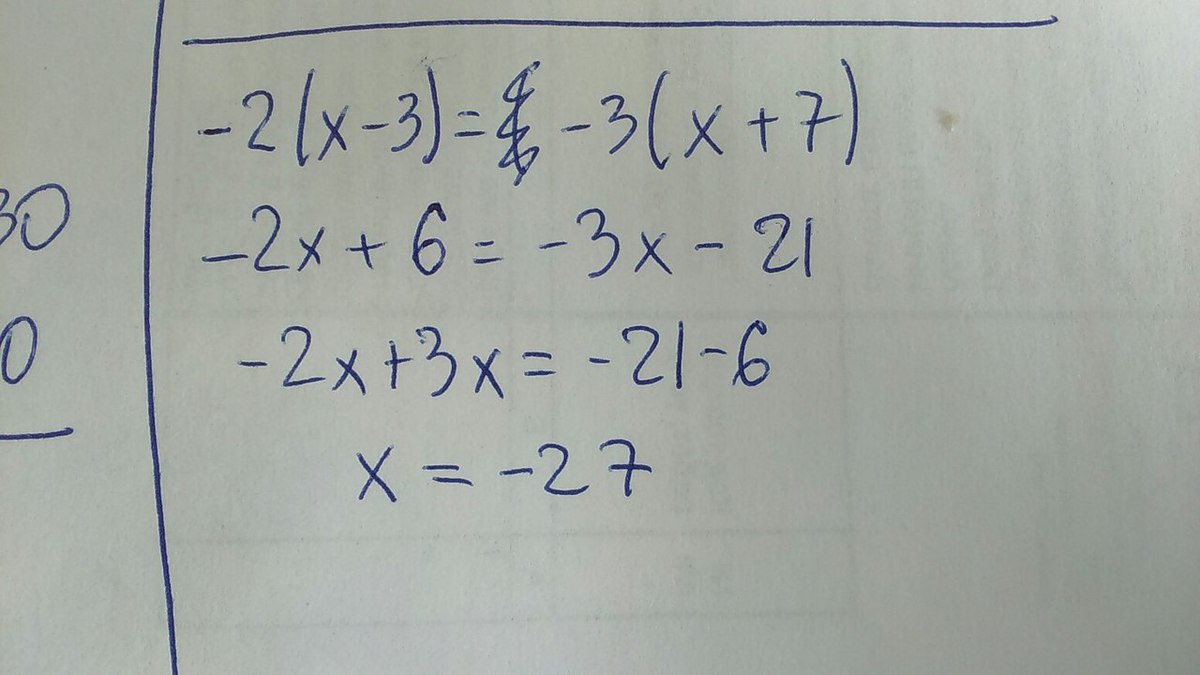 -2(x-3)= -3(x+7)
-2x+6=-3x-21
-2x+3x=-21-6
x=-27
30
0